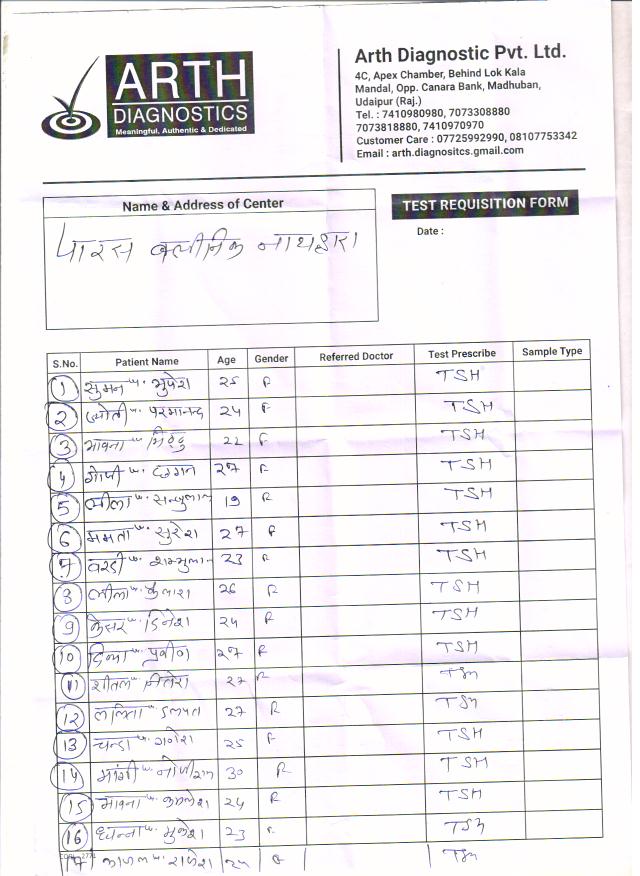 ARTH
DIAGNOSTICS
Meaningful, Authentic & Dedicated
Arth Diagnostic Pvt. Ltd.
4C, Apex Chamber, Behind Lok Kala
Mandal, Opp. Canara Bank, Madhuban,
Udaipur (Raj.)
Tel. : 7410980980, 7073308880
7073818880, 7410970970
Customer Care : 07725992990, 08107753342
Email : arth.diagnositcs.gmail.com
Name & Address of Center
TEST REQUISITION FORM
Date :
पारस क्लीनिक नाथद्वारा
S.No. Patient Name Age Gender Referred Doctor Test Prescribe Sample Type
1 सुमन w. भुपेश 25 F TSH
2 w. परमानन्द 24 F TSH
3 भावना w. 22 F TSH
4 w. छगन 27 F TSH
5 लीला w. 19 F TSH
6 ममता w. सुरेश 27 F TSH
7 w. 23 F TSH
8 लीला w. कैलाश 26 F TSH
9 केसर w. दिनेश 24 F TSH
10 w. प्रवीण 27 F TSH
11 शीतल w. 27 F TSH
12 ललिता w. 27 F TSH
13 चन्दा w. गणेश 25 F TSH
14 मांगी w. 30 F TSH
15 भावना w. कमलेश 24 F TSH
16 w. मुकेश 23 F TSH
17 काजल w. राजेश F TSH